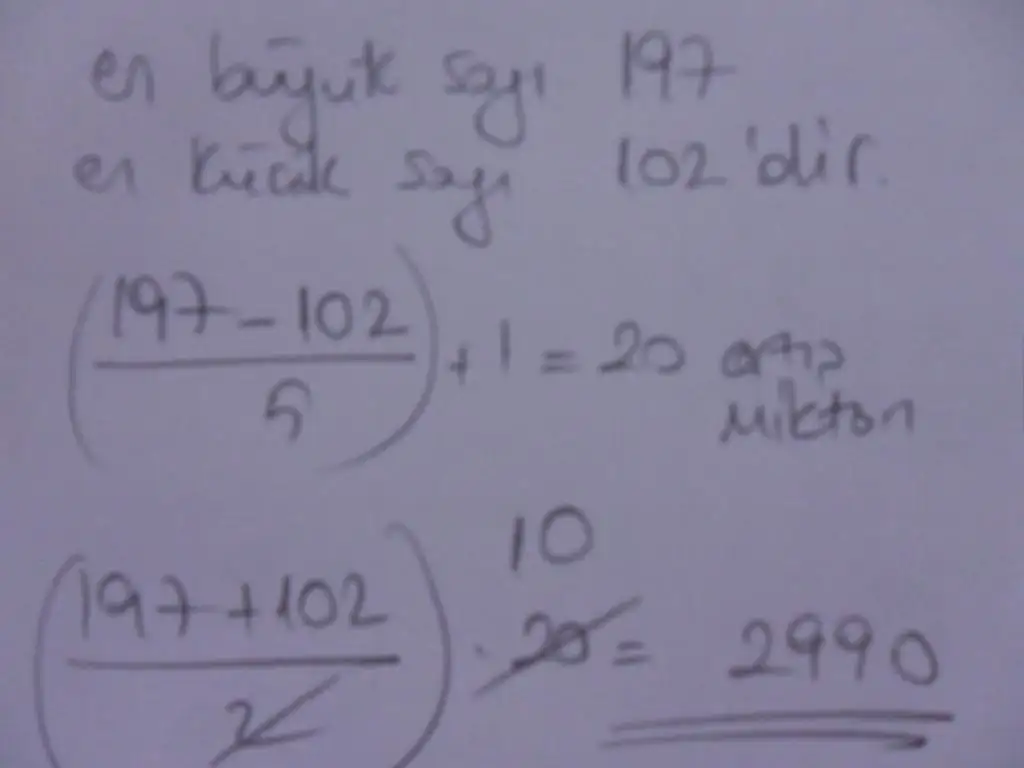 en büyük sayı 197
en küçük sayı 102'dir.
(197 - 102 / 5) + 1 = 20 artış
Miktarı
10
(197 + 102 / 2) . 20 = 2990